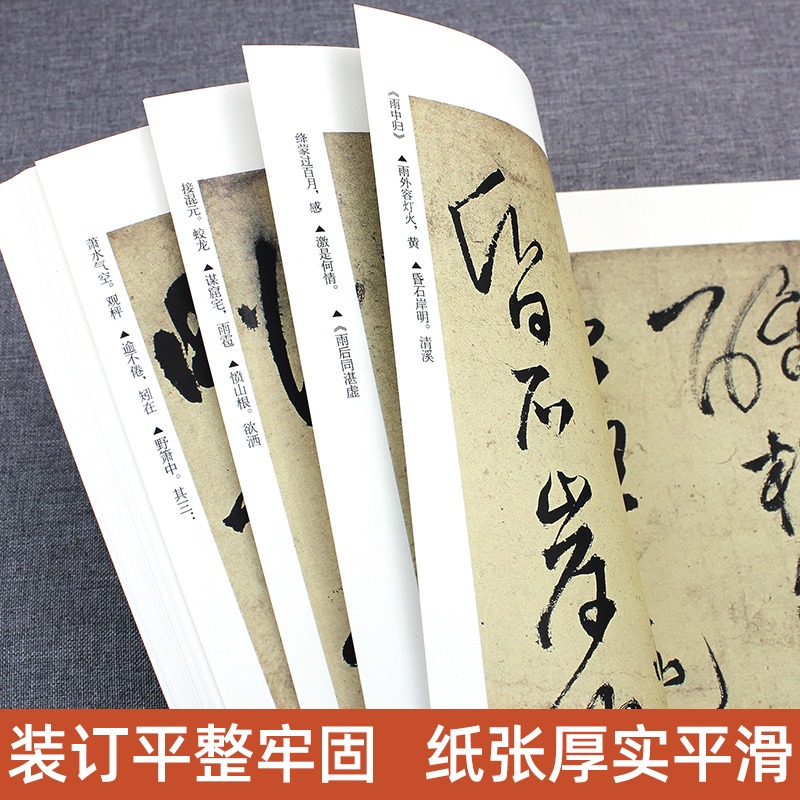 《雨中归》 ▲雨外容灯火，黄 ▲昏石岸明。清溪
绛蒙过百月，感 ▲激是何情。 ▲《雨后同湛虚
接混元。蛟龙 ▲谋窟宅，雨雹 ▲愤山根。欲洒
萧水气空。观枰 ▲逾不倦，矧在 ▲野箫中。其三：
昏石岸明
装订平整牢固 纸张厚实平滑